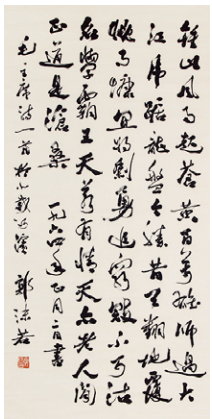 鍾山風雨起蒼黄百萬雄師過大
江虎踞龍盤今勝昔天翻地覆
慨而慷宜將剩勇追窮寇不可沽
名學霸王天若有情天亦老人间
正道是滄桑 一九六四年 書
毛主席詩一首 郭沫若